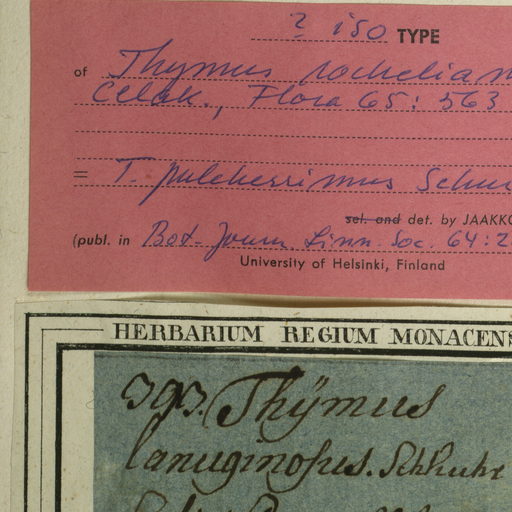 ? iso TYPE
of Thymus rochelian
Čelak., Flora 65: 563
= T. pulcherrimus Schur
sel. and det. by JAAKKO
(publ. in Bot. Journ. Linn. Soc. 64: 2
University of Helsinki, Finland
HERBARIUM REGIUM MONACENS
393. Thÿmus
lanuginosus. Schkuhr